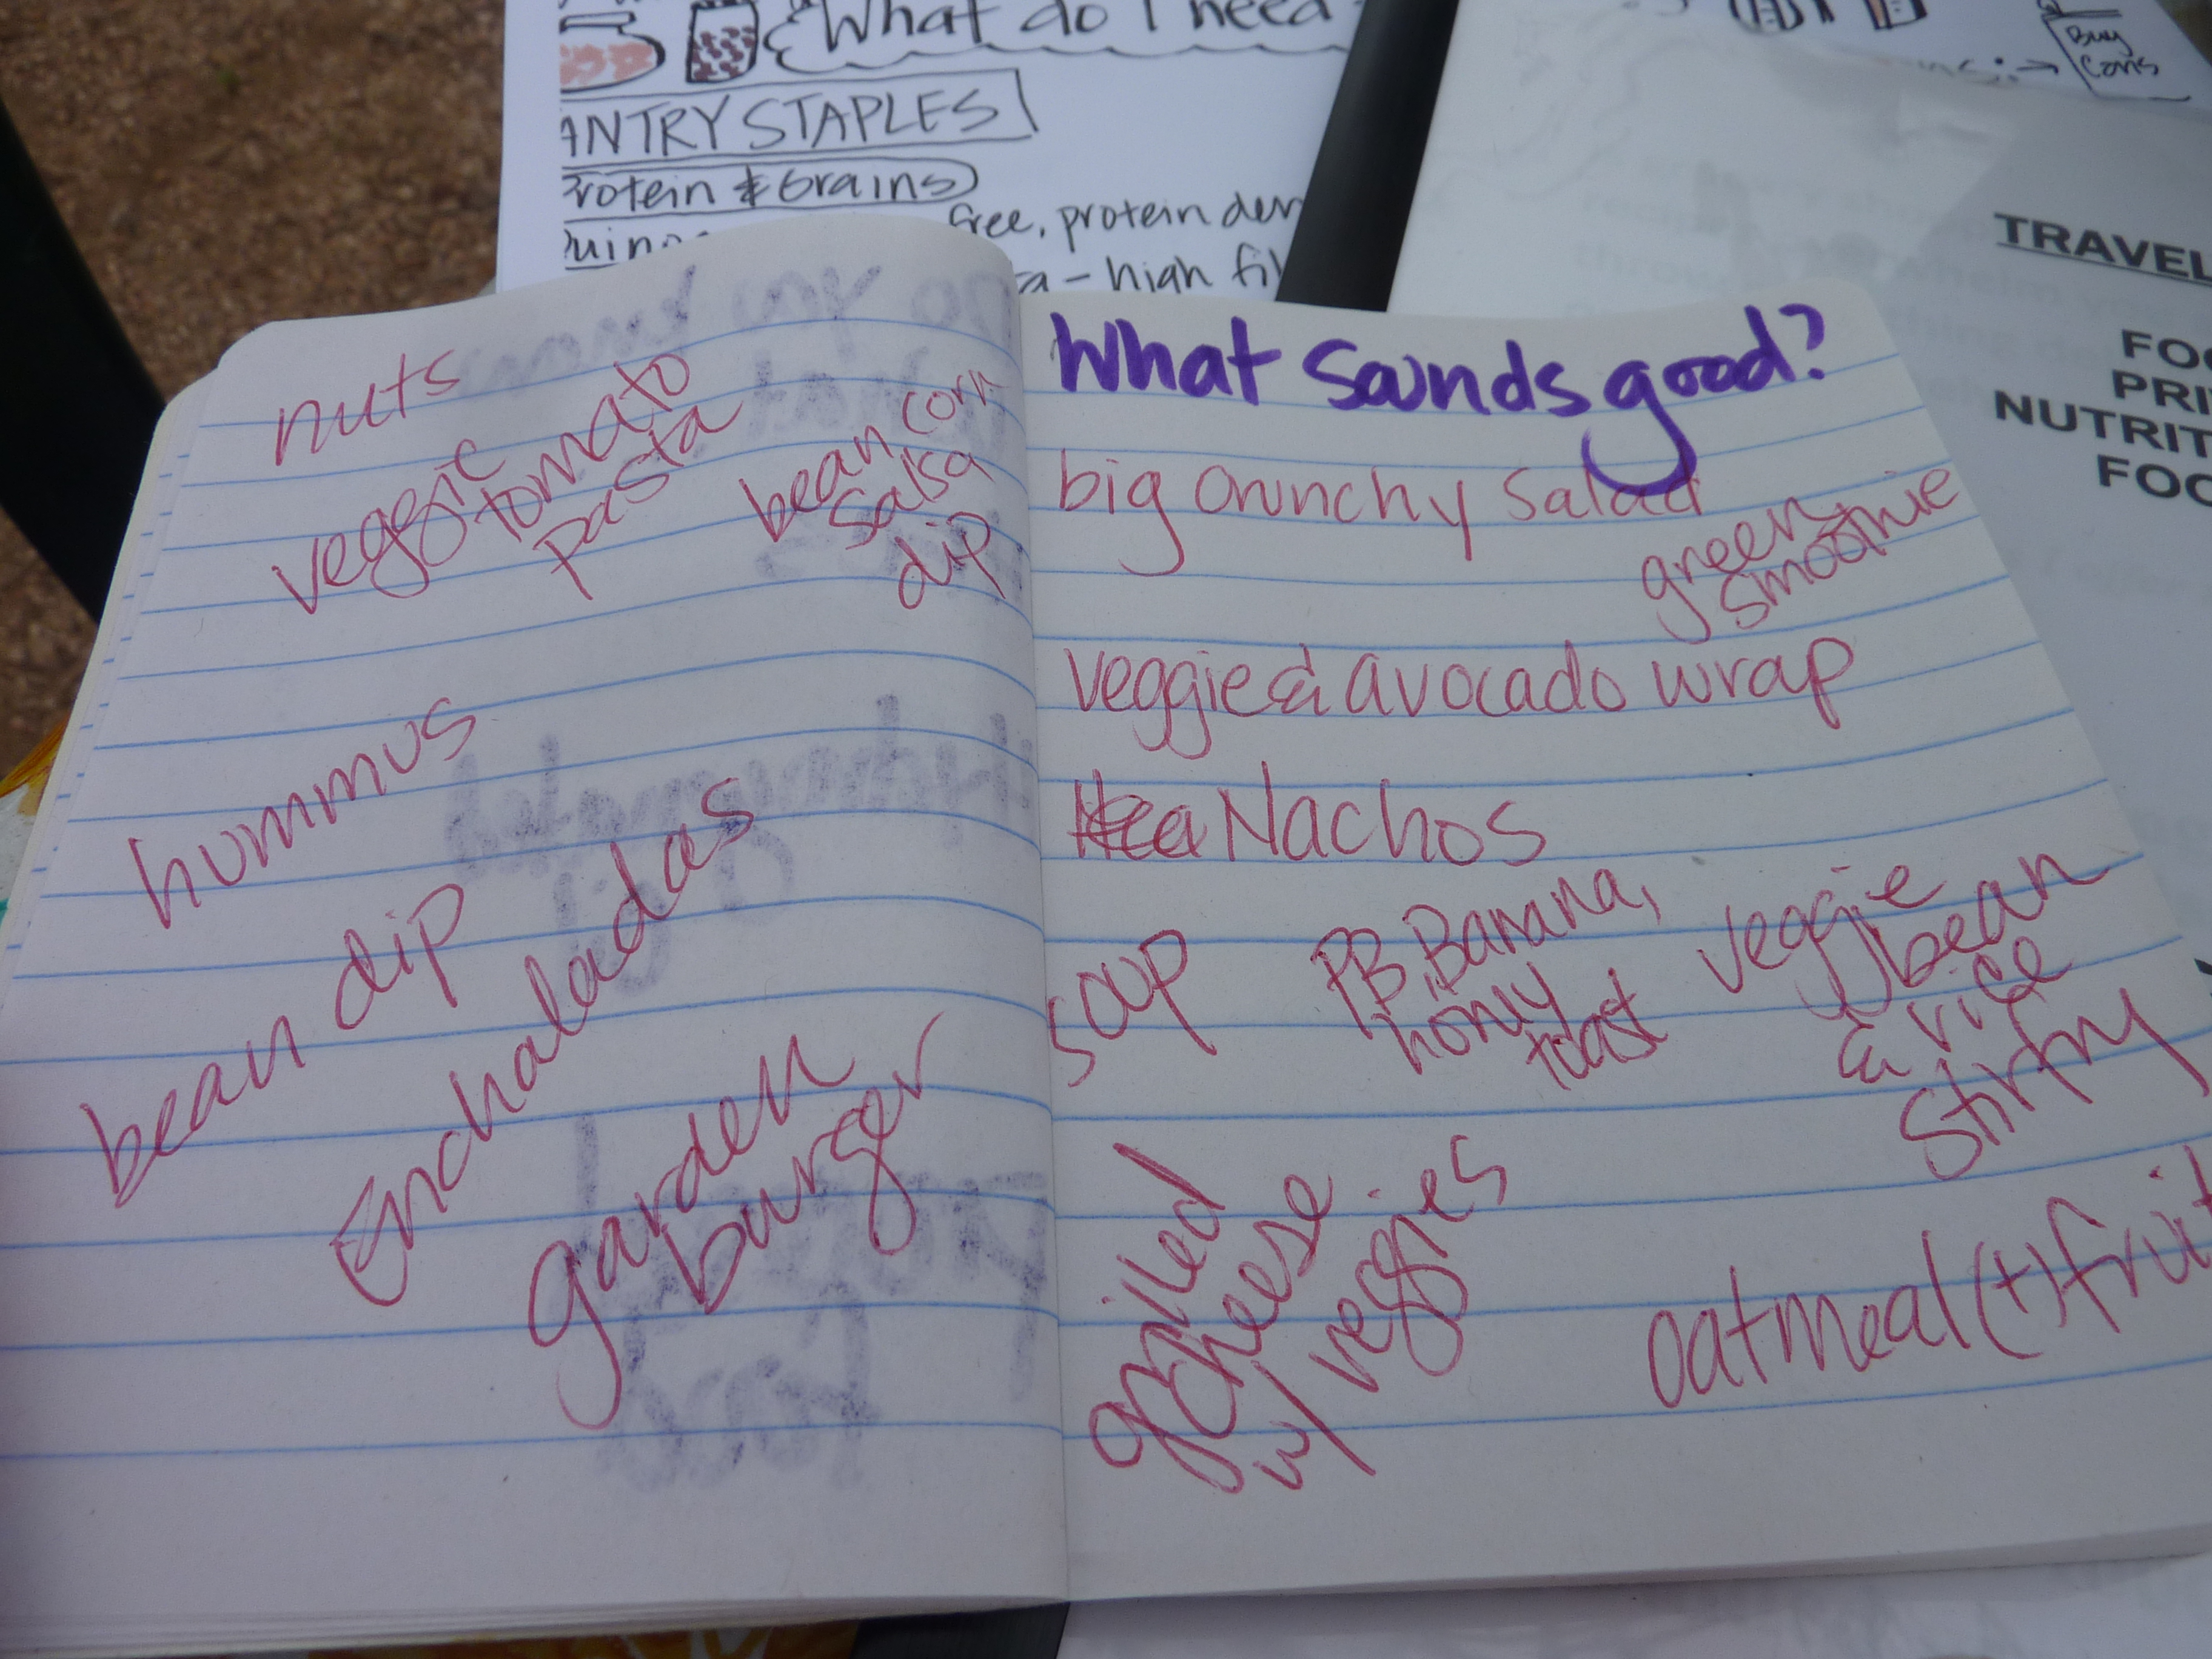 What do I need
ANTRY STAPLES
rotein & Grains
free, protein den
a - high fi
Buy
Cans
TRAVEL
FOO
PRI
NUTRIT
FOO
nuts
veggie
tomato
pasta
bean corn
salsa
dip
hummus
bean dip
Enchaladas
garden
burger
What sounds good?
big crunchy salad
green
smoothie
veggie & avocado wrap
Nachos
soup
PB, Banana,
honey
toast
veggie
bean
& rice
Stirfry
grilled
cheese
w/ veggies
oatmeal (+) fruit